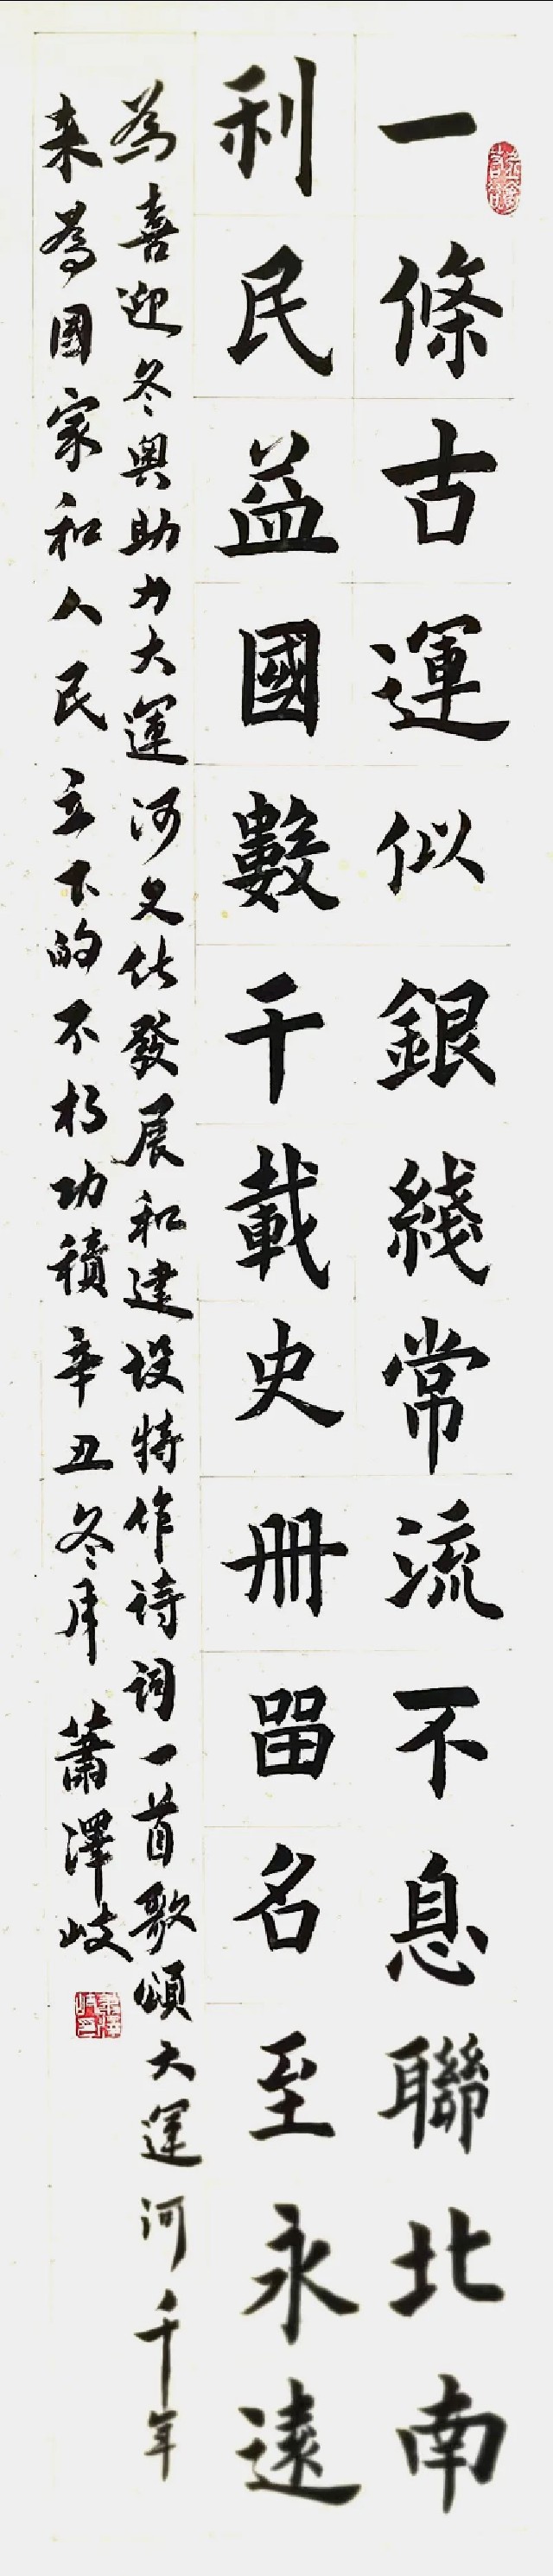 一條古運似銀綫常流不息聯北南
利民益國數千載史冊留名至永遠
為喜迎冬奥助力大運河文化發展和建设特作诗词一首歌頌大運河千年
来為国家和人民立下的不朽功積辛丑冬月 蕭澤岐